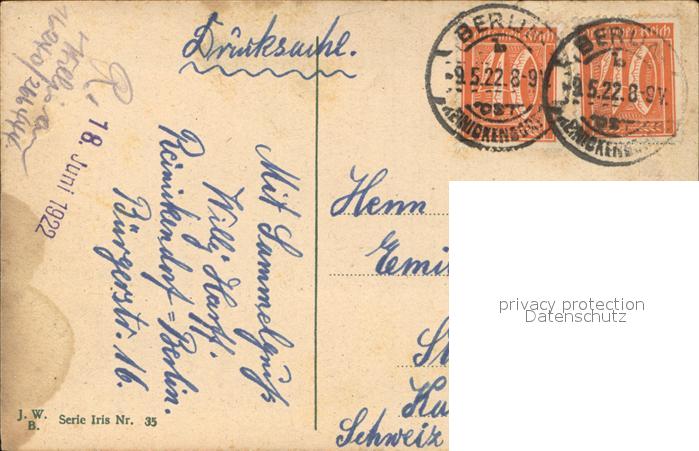 Drucksache.
BERLIN
9.5.22.8-9V.
REINICKENDORF
BERLIN
9.5.22.8-9V.
REINICKENDORF
Reich
40
18. Juni 1922
Mit Sammelgruß
Willy Harff.
Reinikendorf=Berlin.
Bürgerstr. 16.
Herrn
Emi
St
Schweiz
privacy protection
Datenschutz
J. W.
B.
Serie Iris Nr. 35